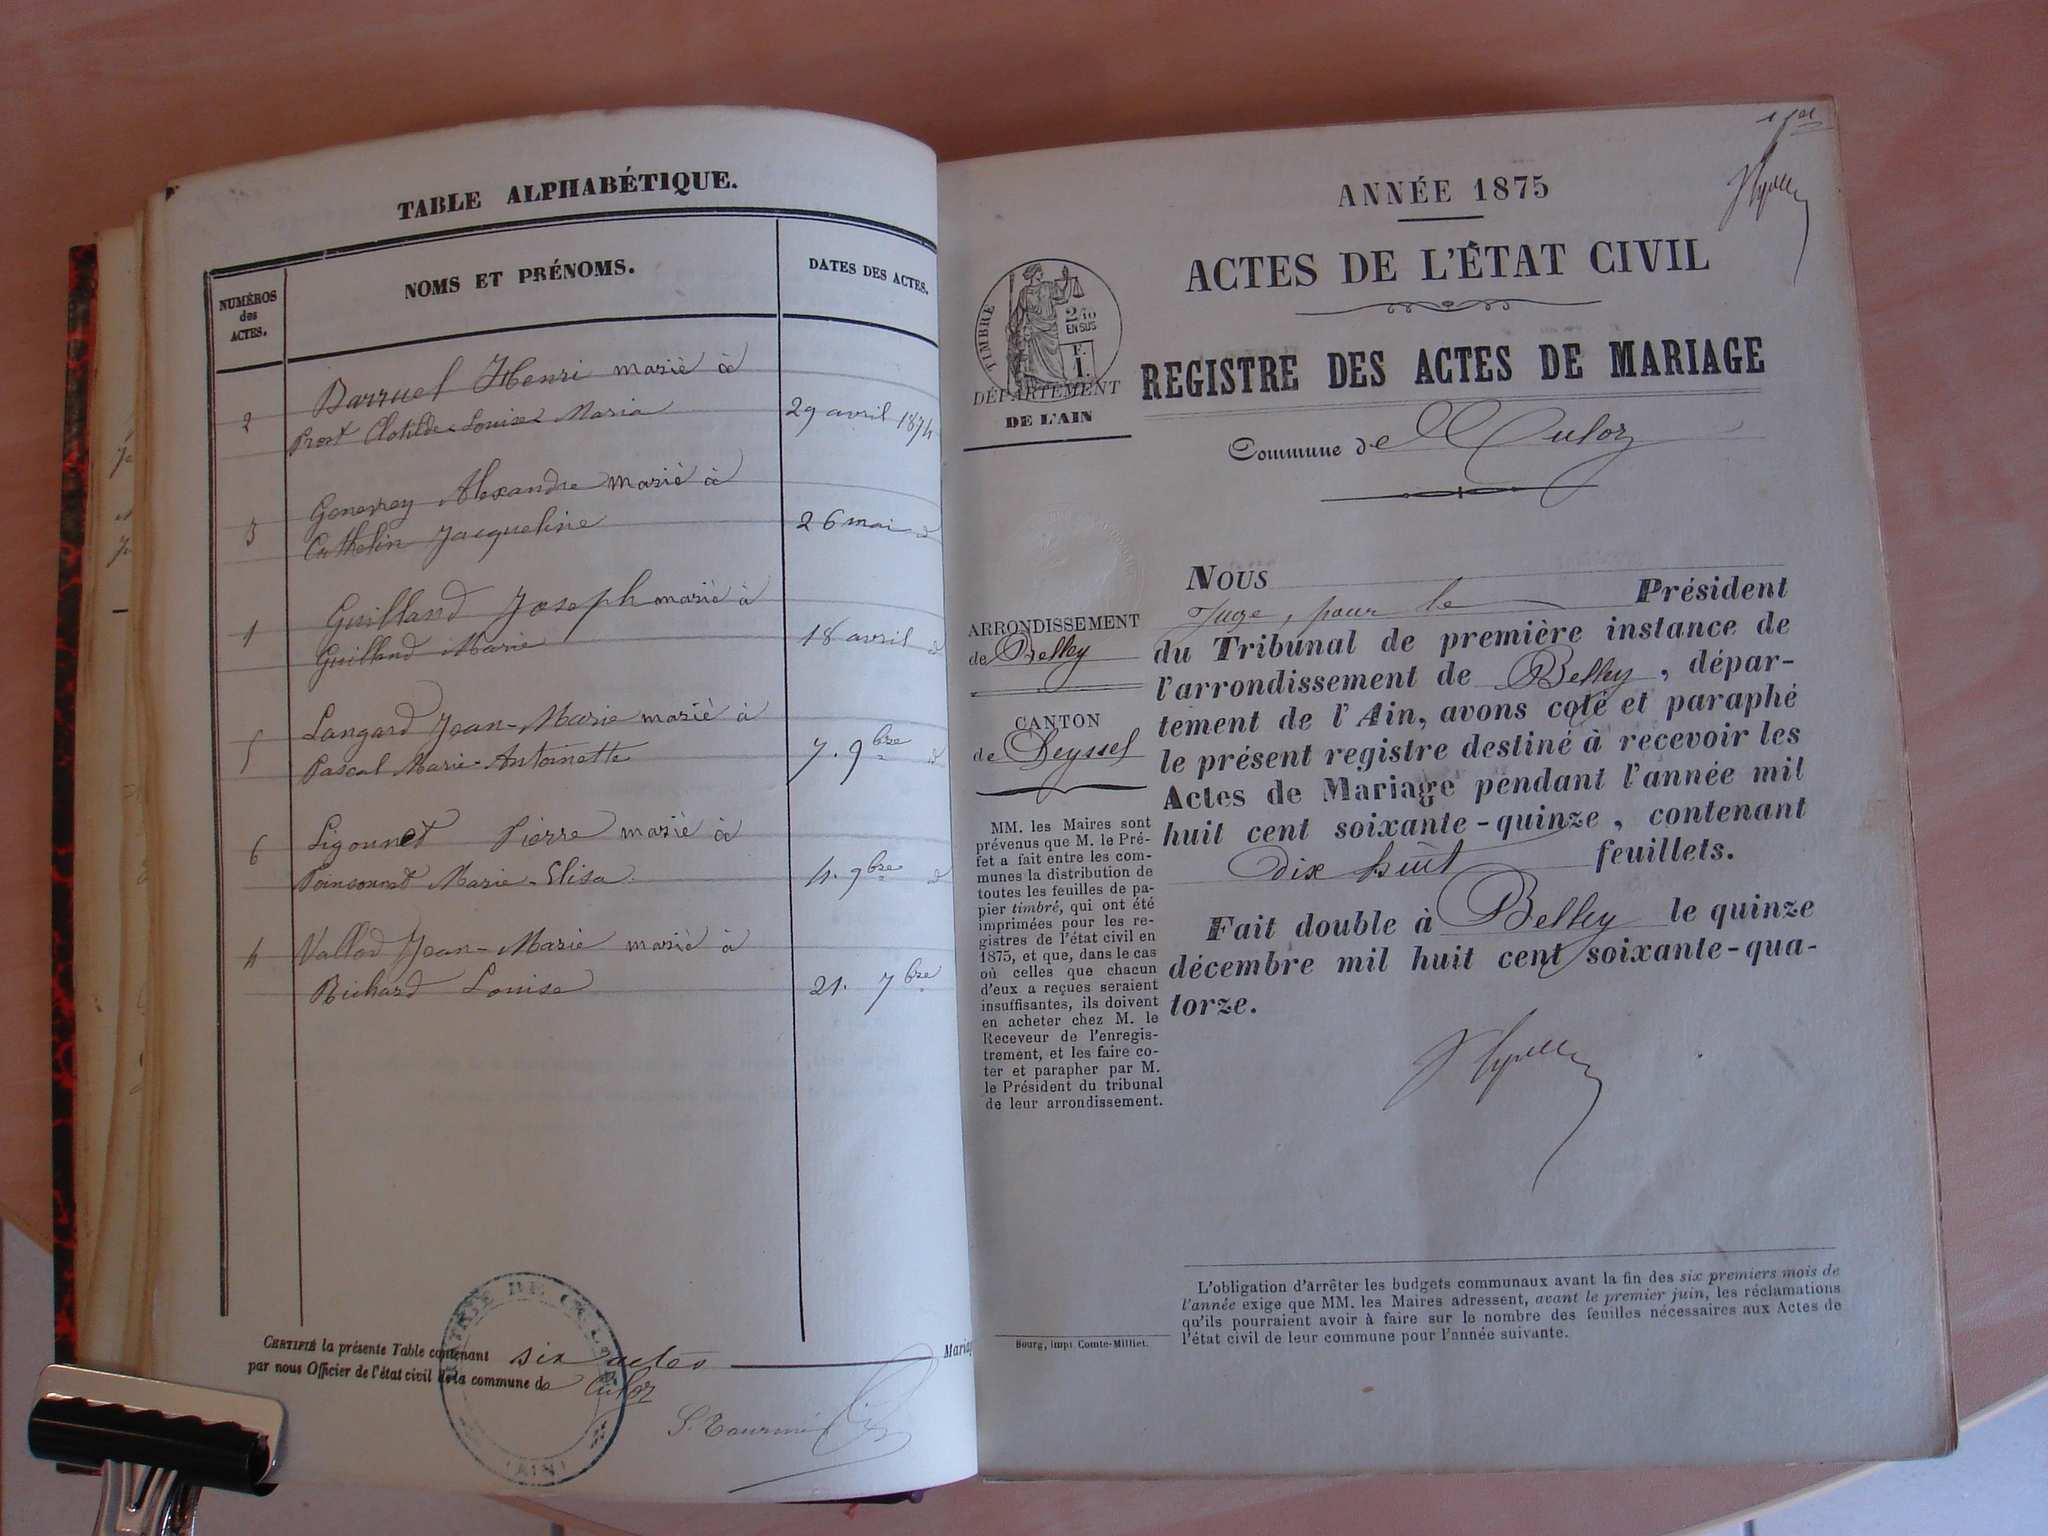 TABLE ALPHABÉTIQUE.
NUMÉROS
des
ACTES.
NOMS ET PRÉNOMS.
DATES DES ACTES.
Barruel Henri marié à
2
Prost Clotilde-Louise Maria
29 avril 1874
Genevrey Alexandre marié à
3
Cathelin Jacqueline
26 mai d
Guilland Joseph marié à
1
Guilland Marie
18 avril d
Langard Jean-Marie marié à
5
Pascal Marie-Antoinette
7. 9bre d
Ligonnet Pierre marié à
6
Poinsonnet Marie-Elisa
4. 9bre d
4
Vallod Jean-Marie marié à
Richard Louise
21. 7bre
CERTIFIÉ la présente Table contenant six actes Mariag
par nous Officier de l'état civil de la commune de Culoz
(AIN)
1er
ANNÉE 1875
ACTES DE L'ÉTAT CIVIL
REGISTRE DES ACTES DE MARIAGE
Commune de Culoz
TIMBRE
2/10
EN SUS
F.
1.
DÉPARTEMENT
DE L'AIN
ARRONDISSEMENT
de Belley
CANTON
de Seyssel
MM. les Maires sont
prévenus que M. le Pré-
fet a fait entre les com-
munes la distribution de
toutes les feuilles de pa-
pier timbré, qui ont été
imprimées pour les re-
gistres de l'état civil en
1875, et que, dans le cas
où celles que chacun
d'eux a reçues seraient
insuffisantes, ils doivent
en acheter chez M. le
Receveur de l'enregis-
trement, et les faire co-
ter et parapher par M.
le Président du tribunal
de leur arrondissement.
NOUS
Juge, pour le Président
du Tribunal de première instance de
l'arrondissement de Belley, dépar-
tement de l'Ain, avons coté et paraphé
le présent registre destiné à recevoir les
Actes de Mariage pendant l'année mil
huit cent soixante-quinze, contenant
dix huit feuillets.
Fait double à Belley le quinze
décembre mil huit cent soixante-qua-
torze.
Bourg, impr. Comte-Milliet.
L'obligation d'arrêter les budgets communaux avant la fin des six premiers mois de
l'année exige que MM. les Maires adressent, avant le premier juin, les réclamations
qu'ils pourraient avoir à faire sur le nombre des feuilles nécessaires aux Actes de
l'état civil de leur commune pour l'année suivante.